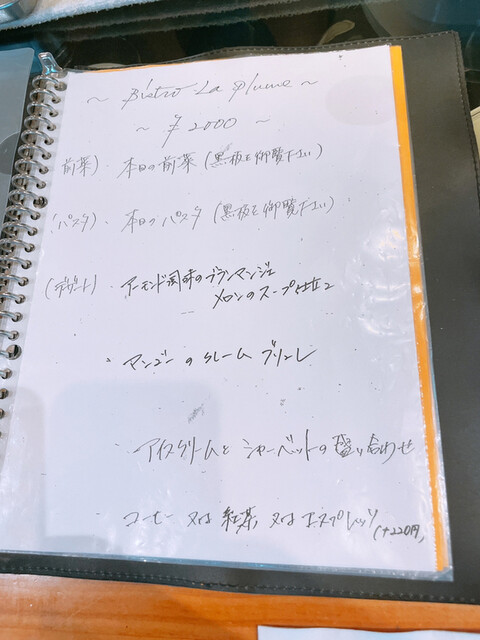 ～ Bistro La Plume ～
～ ¥2000 ～
前菜) ・本日の前菜 (黒板を御覧下さい)
(パスタ) ・本日のパスタ (黒板を御覧下さい)
(デザート) ・アーモンド風味のブランマンジェ
メロンのスープ仕立て
・マンゴーのクレームブリュレ
アイスクリームとシャーベットの盛り合わせ
コーヒー 又は 紅茶 又は エスプレッソ
(+220円)